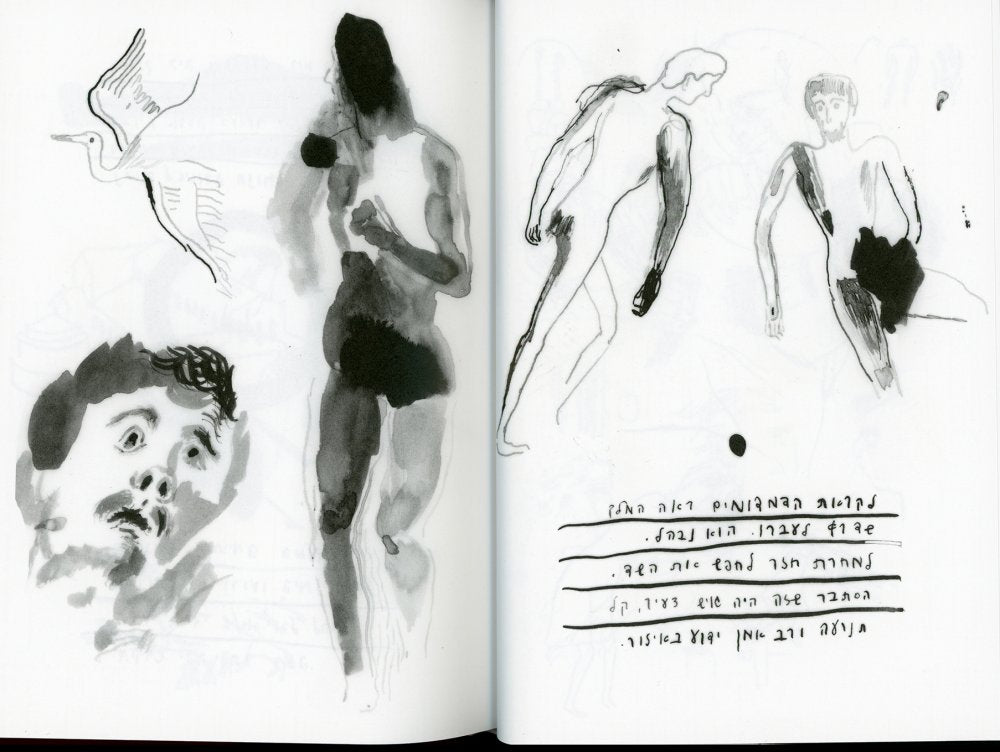 לקראת הדמדומים ראה המלך
שד רץ לעברו. הוא נבהל.
למחרת חזר לחפש את השד.
הסתבר שזה היה איש צעיר, קל
תנועה ורב אמן ידוע באיזור.